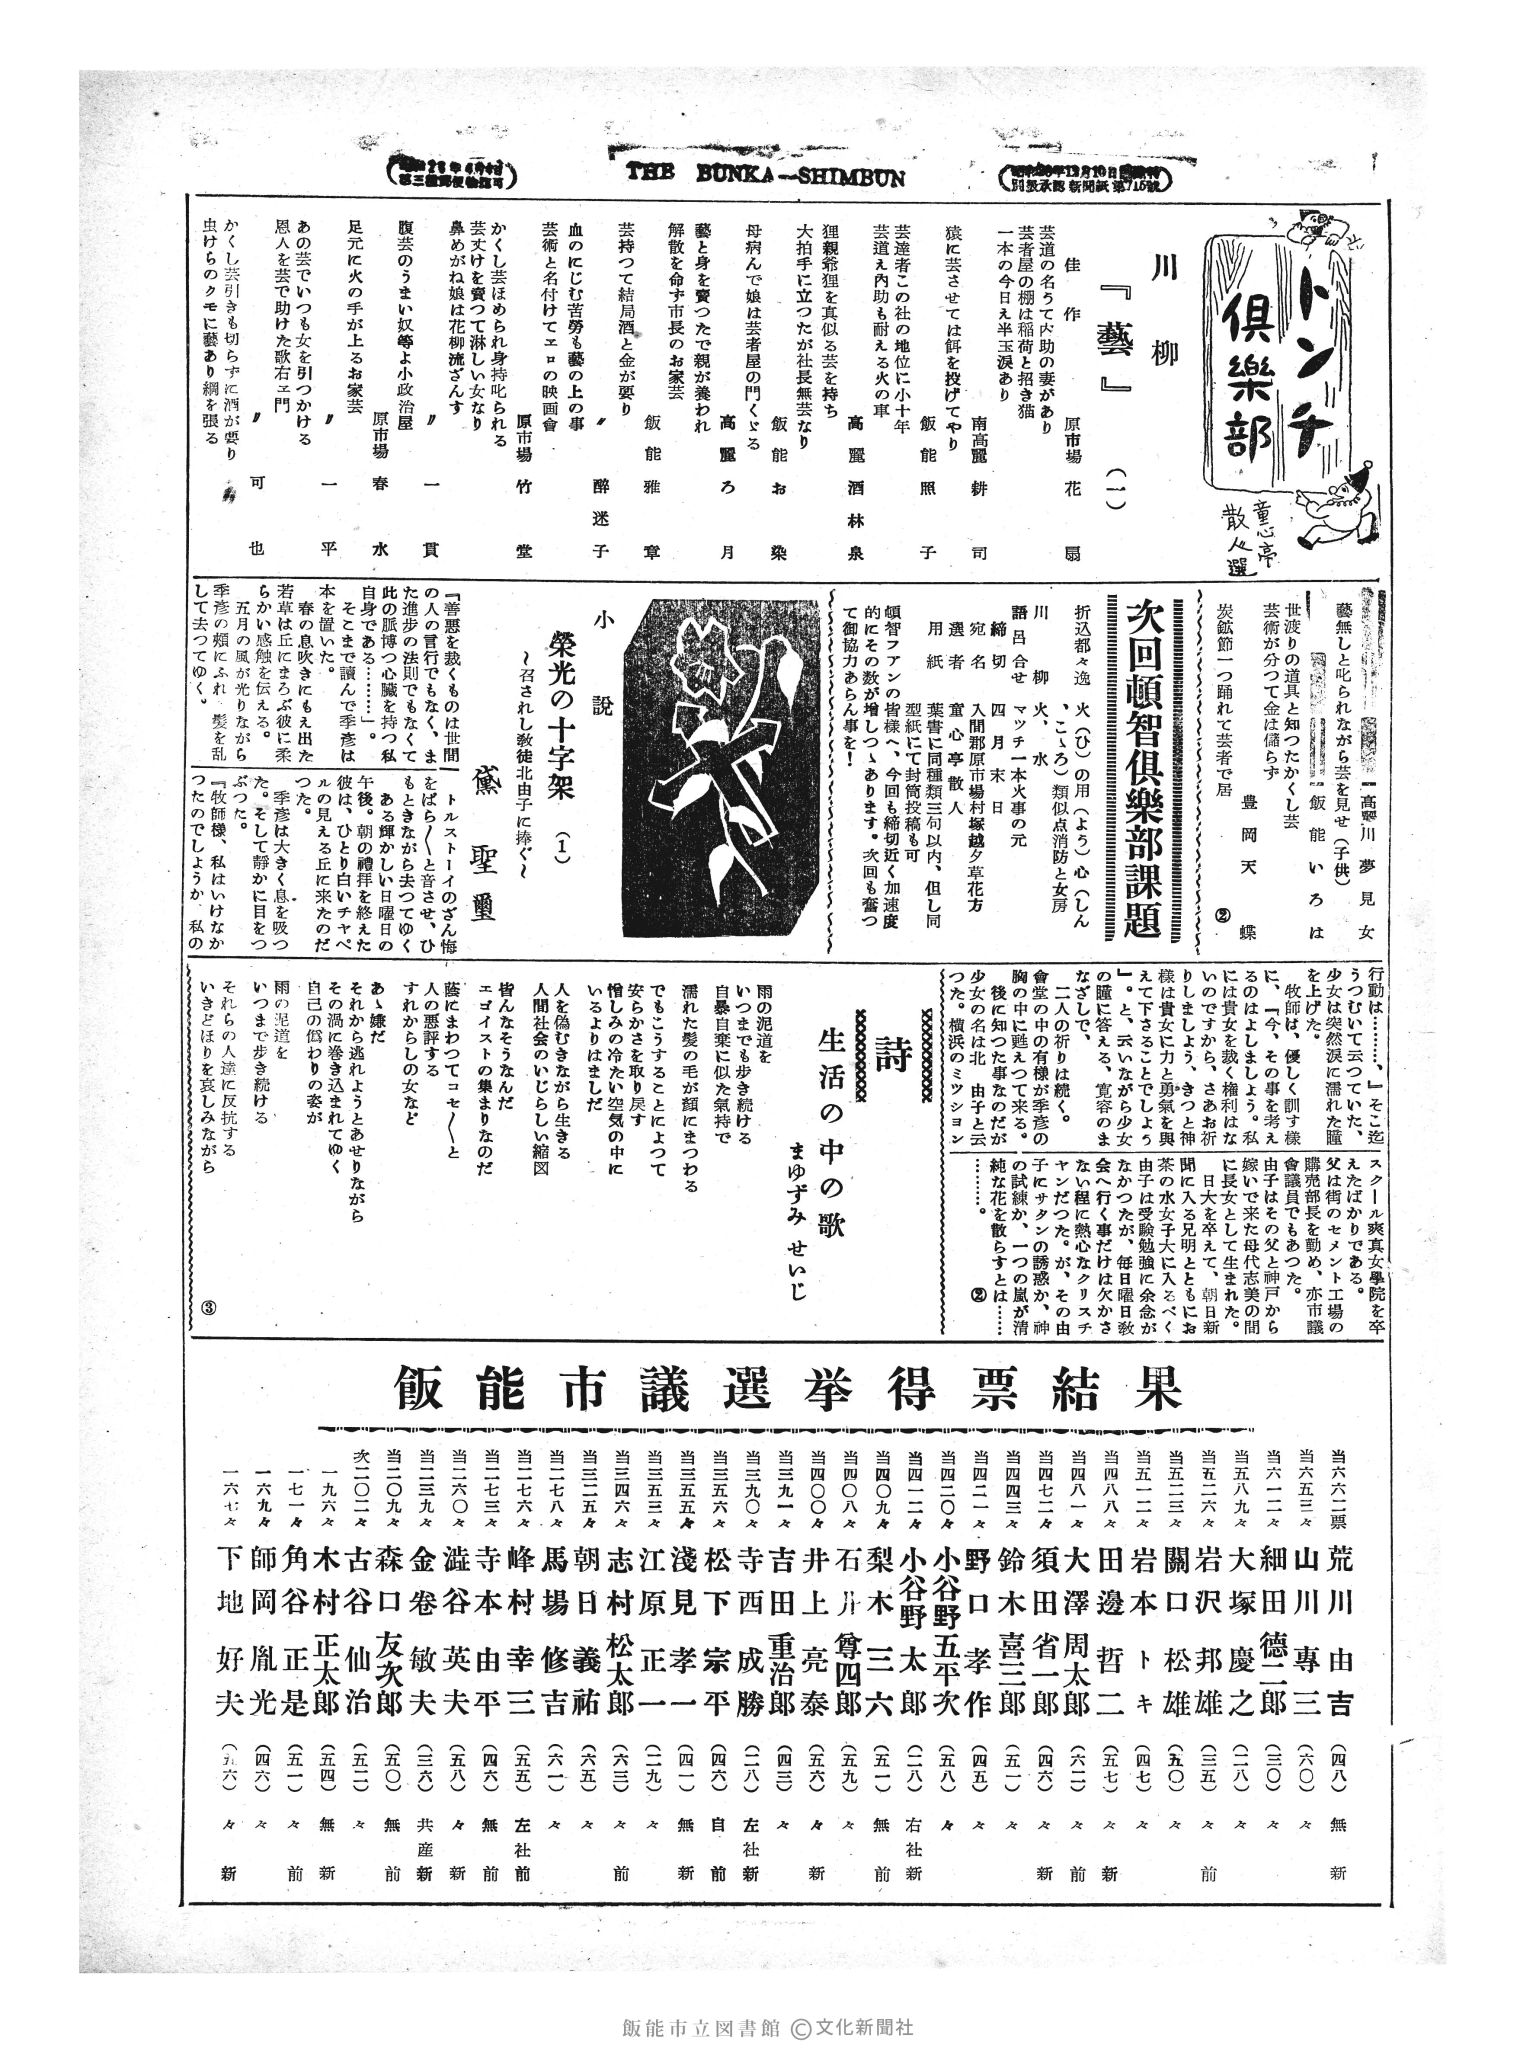 THE BUNKA—SHIMBUN
トンチ
倶樂部
童心亭
散人選
川柳
『藝』(一)
佳作
芸道の名うて内助の妻があり
原市場 花扇
芸者屋の棚は稲荷と招き猫
一本の今日え半玉涙あり
南高麗 耕司
猿に芸させては餌を投げてやり
飯能 照子
芸達者この社の地位に小十年
芸道え內助も耐える火の車
高麗 酒林泉
狸親爺狸を真似る芸を持ち
大拍手に立つたが社長無芸なり
飯能 お染
母病んで娘は芸者屋の門くゞる
高麗 ろ月
藝と身を賣つたで親が養われ
解散を命ず市長のお家芸
飯能 雅章
芸持つて結局酒と金が要り
〃 醉迷子
血のにじむ苦勞も藝の上の事
芸術と名付けてエロの映画會
原市場 竹堂
かくし芸ほめられ身持叱られる
芸丈けを賣つて淋しい女なり
鼻めがね娘は花柳流ざんす
〃 一貫
腹芸のうまい奴等よ小政治屋
原市場 春水
足元に火の手が上るお家芸
〃 一平
あの芸でいつも女を引つかける
恩人を芸で助けた歌右ヱ門
〃 可也
かくし芸引きも切らずに酒が要り
虫けらのクモに藝あり綱を張る
高麗川 夢見女
藝無しと叱られながら芸を見せ(子供)
飯能 いろは
世渡りの道具と知つたかくし芸
芸術が分つて金は儲らず
豊岡 天蝶
炭鉱節一つ踊れて芸者で居
②
次回頓智倶樂部課題
折込都々逸 火(ひ)の用(よう)心(しん
、こゝろ)類似点消防と女房
川柳 火、水
語呂合せ マツチ一本火事の元
締切 四月末日
宛名 入間郡原市場村塚越夕草花方
選者 童心亭散人
用紙 葉書に同種類三句以内、但し同
型紙にて封筒投稿も可
頓智フアンの皆様へ、今回も締切近く加速度
的にその数が増しつゝあります。次回も奮つ
て御協力あらん事を!
小說
榮光の十字架 (1)
〜召されし敎徒北由子に捧ぐ〜
黛聖璽
『善悪を裁くものは世間
の人の言行でもなく、ま
た進歩の法則でもなくて
此の脈博つ心臓を持つ私
自身である………』。
そこまで讀んで季彦は
本を置いた。
春の息吹きにもえ出た
若草は丘にまろぶ彼に柔
らかい感触を伝える。
五月の風が光りながら
季彦の頬にふれ、髪を乱
して去つてゆく。
トルストーイのざん悔
をばら〳〵と音させ、ひ
もときながら去つてゆく
ある輝かしい日曜日の
午後。朝の禮拜を終えた
彼は、ひとり白いチヤペ
ルの見える丘に来たのだ
つた。
季彦は大きく息を吸つ
た。そして靜かに目をつ
ぶつた。
『牧師様、私はいけなか
つたのでしようか、私の
行動は………、』そこ迄
うつむいて云つていた、
少女は突然涙に濡れた瞳
を上げた。
牧師は、優しく訓す様
に、『今、その事を考え
るのはよしましよう。私
には貴女を裁く権利はな
いのですから、さあお祈
りしましよう、きつと神
様は貴女に力と勇氣を與
えて下さることでしよう
』。と、云いながら少女
の瞳に答える、寛容のま
なざしで、
二人の祈りは続く。
會堂の中の有様が季彦の
胸の中に甦えつて来る。
後に知つた事なのだが
少女の名は北 由子と云
つた。横浜のミツション
スクール爽真女學院を卒
えたばかりである。
父は街のセメント工場の
購売部長を勤め、亦市議
會議員でもあつた。
由子はその父と神戸から
嫁いで来た母代志美の間
に長女として生まれた。
日大を卒えて、朝日新
聞に入る兄明とともにお
茶の水女子大に入るべく
由子は受験勉強に余念が
なかつたが、毎日曜日敎
会へ行く事だけは欠かさ
ない程に熱心なクリスチ
ヤンだつた。が、その由
子にサタンの誘惑か、神
の試練か、一つの嵐が清
純な花を散らすとは……
………。 ②
詩
生活の中の歌
まゆずみ せいじ
雨の泥道を
いつまでも歩き続ける
自暴自棄に似た氣持で
濡れた髪の毛が顔にまつわる
でもこうすることによつて
安らかさを取り戻す
憎しみの冷たい空気の中に
いるよりはましだ
人を偽むきながら生きる
人間社会のいじらしい縮図
皆んなそうなんだ
エゴイストの集まりなのだ
蔭にまわつてコセ〳〵と
人の悪評する
すれからしの女など
あゝ嫌だ
それから逃れようとあせりながら
その渦に巻き込まれてゆく
自己の僞わりの姿が
雨の泥道を
いつまで歩き続ける
それらの人達に反抗する
いきどほりを哀しみながら
③
飯能市議選挙得票結果
当六六二票 荒川由吉 (四八) 無 新
当六五三々 山川專三 (六〇) 々
当六一二々 細田德二郎 (三〇) 々
当五八九々 大塚慶之 (二八) 々
当五二六々 岩沢邦雄 (三五) 々 前
当五二三々 關口松雄 (五〇) 々
当五一二々 岩本トキ (四七) 々
当四八八々 田邊哲二 (五七) 々 新
当四八一々 大澤周太郎 (六二) 々 前
当四七二々 須田省一郎 (四六) 々 新
当四四三々 鈴木喜三郎 (五一) 々
当四二一々 野口孝作 (四五) 々
当四二〇々 小谷野五平次 (五八) 々
当四一二々 小谷野太郎 (二八) 右社新
当四〇九々 梨木三六 (五一) 無 前
当四〇八々 石井尊四郎 (五九) 々
当四〇〇々 井上亮泰 (五六) 々 新
当三九一々 吉田重治郎 (四三) 々
当三九〇々 寺西成勝 (二八) 左社新
当三五六々 松下宗平 (四六) 自 前
当三五五々 淺見孝一 (四一) 無 新
当三五三々 江原正一 (二九) 々
当三四六々 志村松太郎 (六三) 々 前
当三二五々 朝日義祐 (六五) 々
当二七八々 馬場修吉 (六一) 々
当二七六々 峰村幸三 (五五) 左社前
当二七三々 寺本由平 (四六) 無 前
当二六〇々 澁谷英夫 (五八) 々 新
当二三九々 金卷敏夫 (三六) 共産新
当二〇九々 森口友次郎 (五〇) 無 前
次二〇二々 古谷仙治 (五二) 々
一九六々 木村正太郎 (五四) 無 新
一七一々 角谷正是 (五一) 々 前
一六九々 師岡胤光 (四六) 々
一六七々 下地好夫 (五六) 々 新
飯能市立図書館 ©文化新聞社